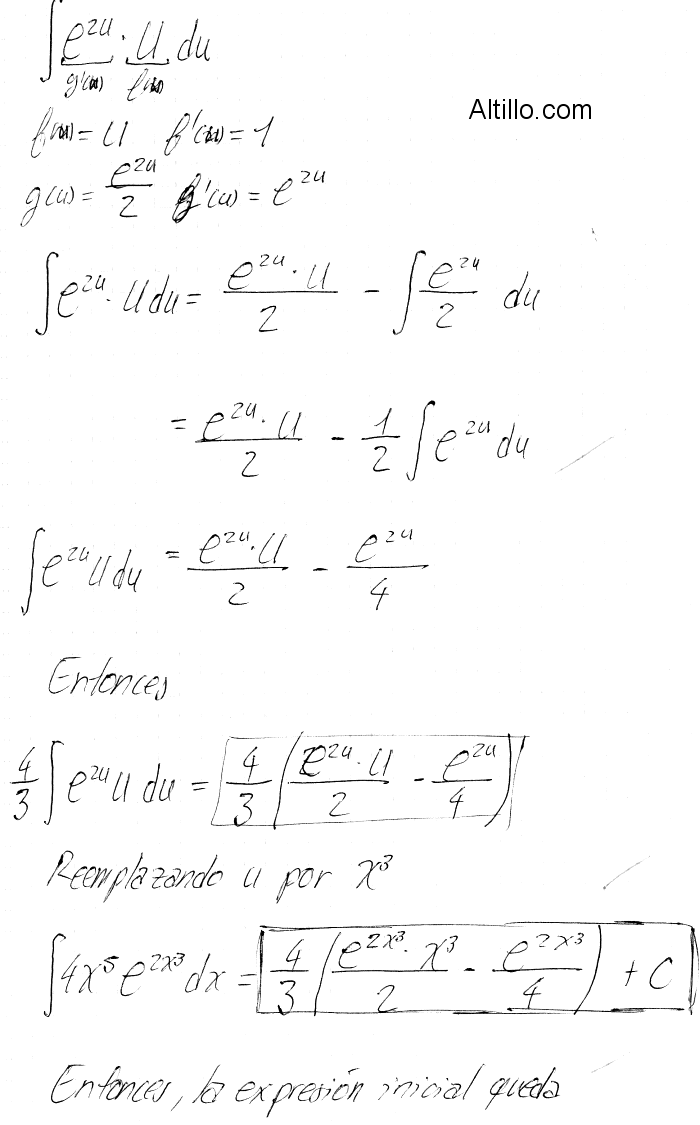 ∫ e^{2u} · u du
g'(u) f(u)
Altillo.com
f(u) = u f'(u) = 1
g(u) = e^{2u}/2 g'(u) = e^{2u}
∫ e^{2u} · u du = (e^{2u} · u)/2 - ∫ e^{2u}/2 du
= (e^{2u} · u)/2 - 1/2 ∫ e^{2u} du
∫ e^{2u} u du = (e^{2u} · u)/2 - e^{2u}/4
Entonces
4/3 ∫ e^{2u} u du = 4/3 ( (e^{2u} · u)/2 - e^{2u}/4 )
Reemplazando u por x³
∫ 4x⁵ e^{2x³} dx = 4/3 ( (e^{2x³} · x³)/2 - e^{2x³}/4 ) + C
Entonces, la expresión inicial queda